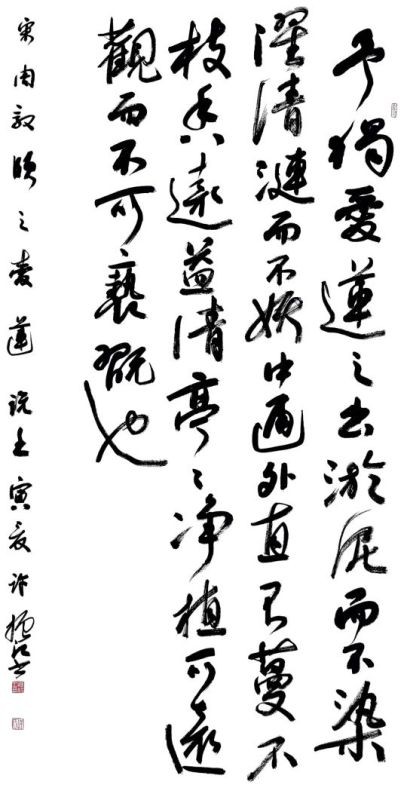 予獨愛蓮之出淤泥而不染
濯清漣而不妖中通外直不蔓不
枝香遠益清亭〻净植可遠
觀而不可褻翫也
宋周敦頤之愛蓮說壬寅夏許